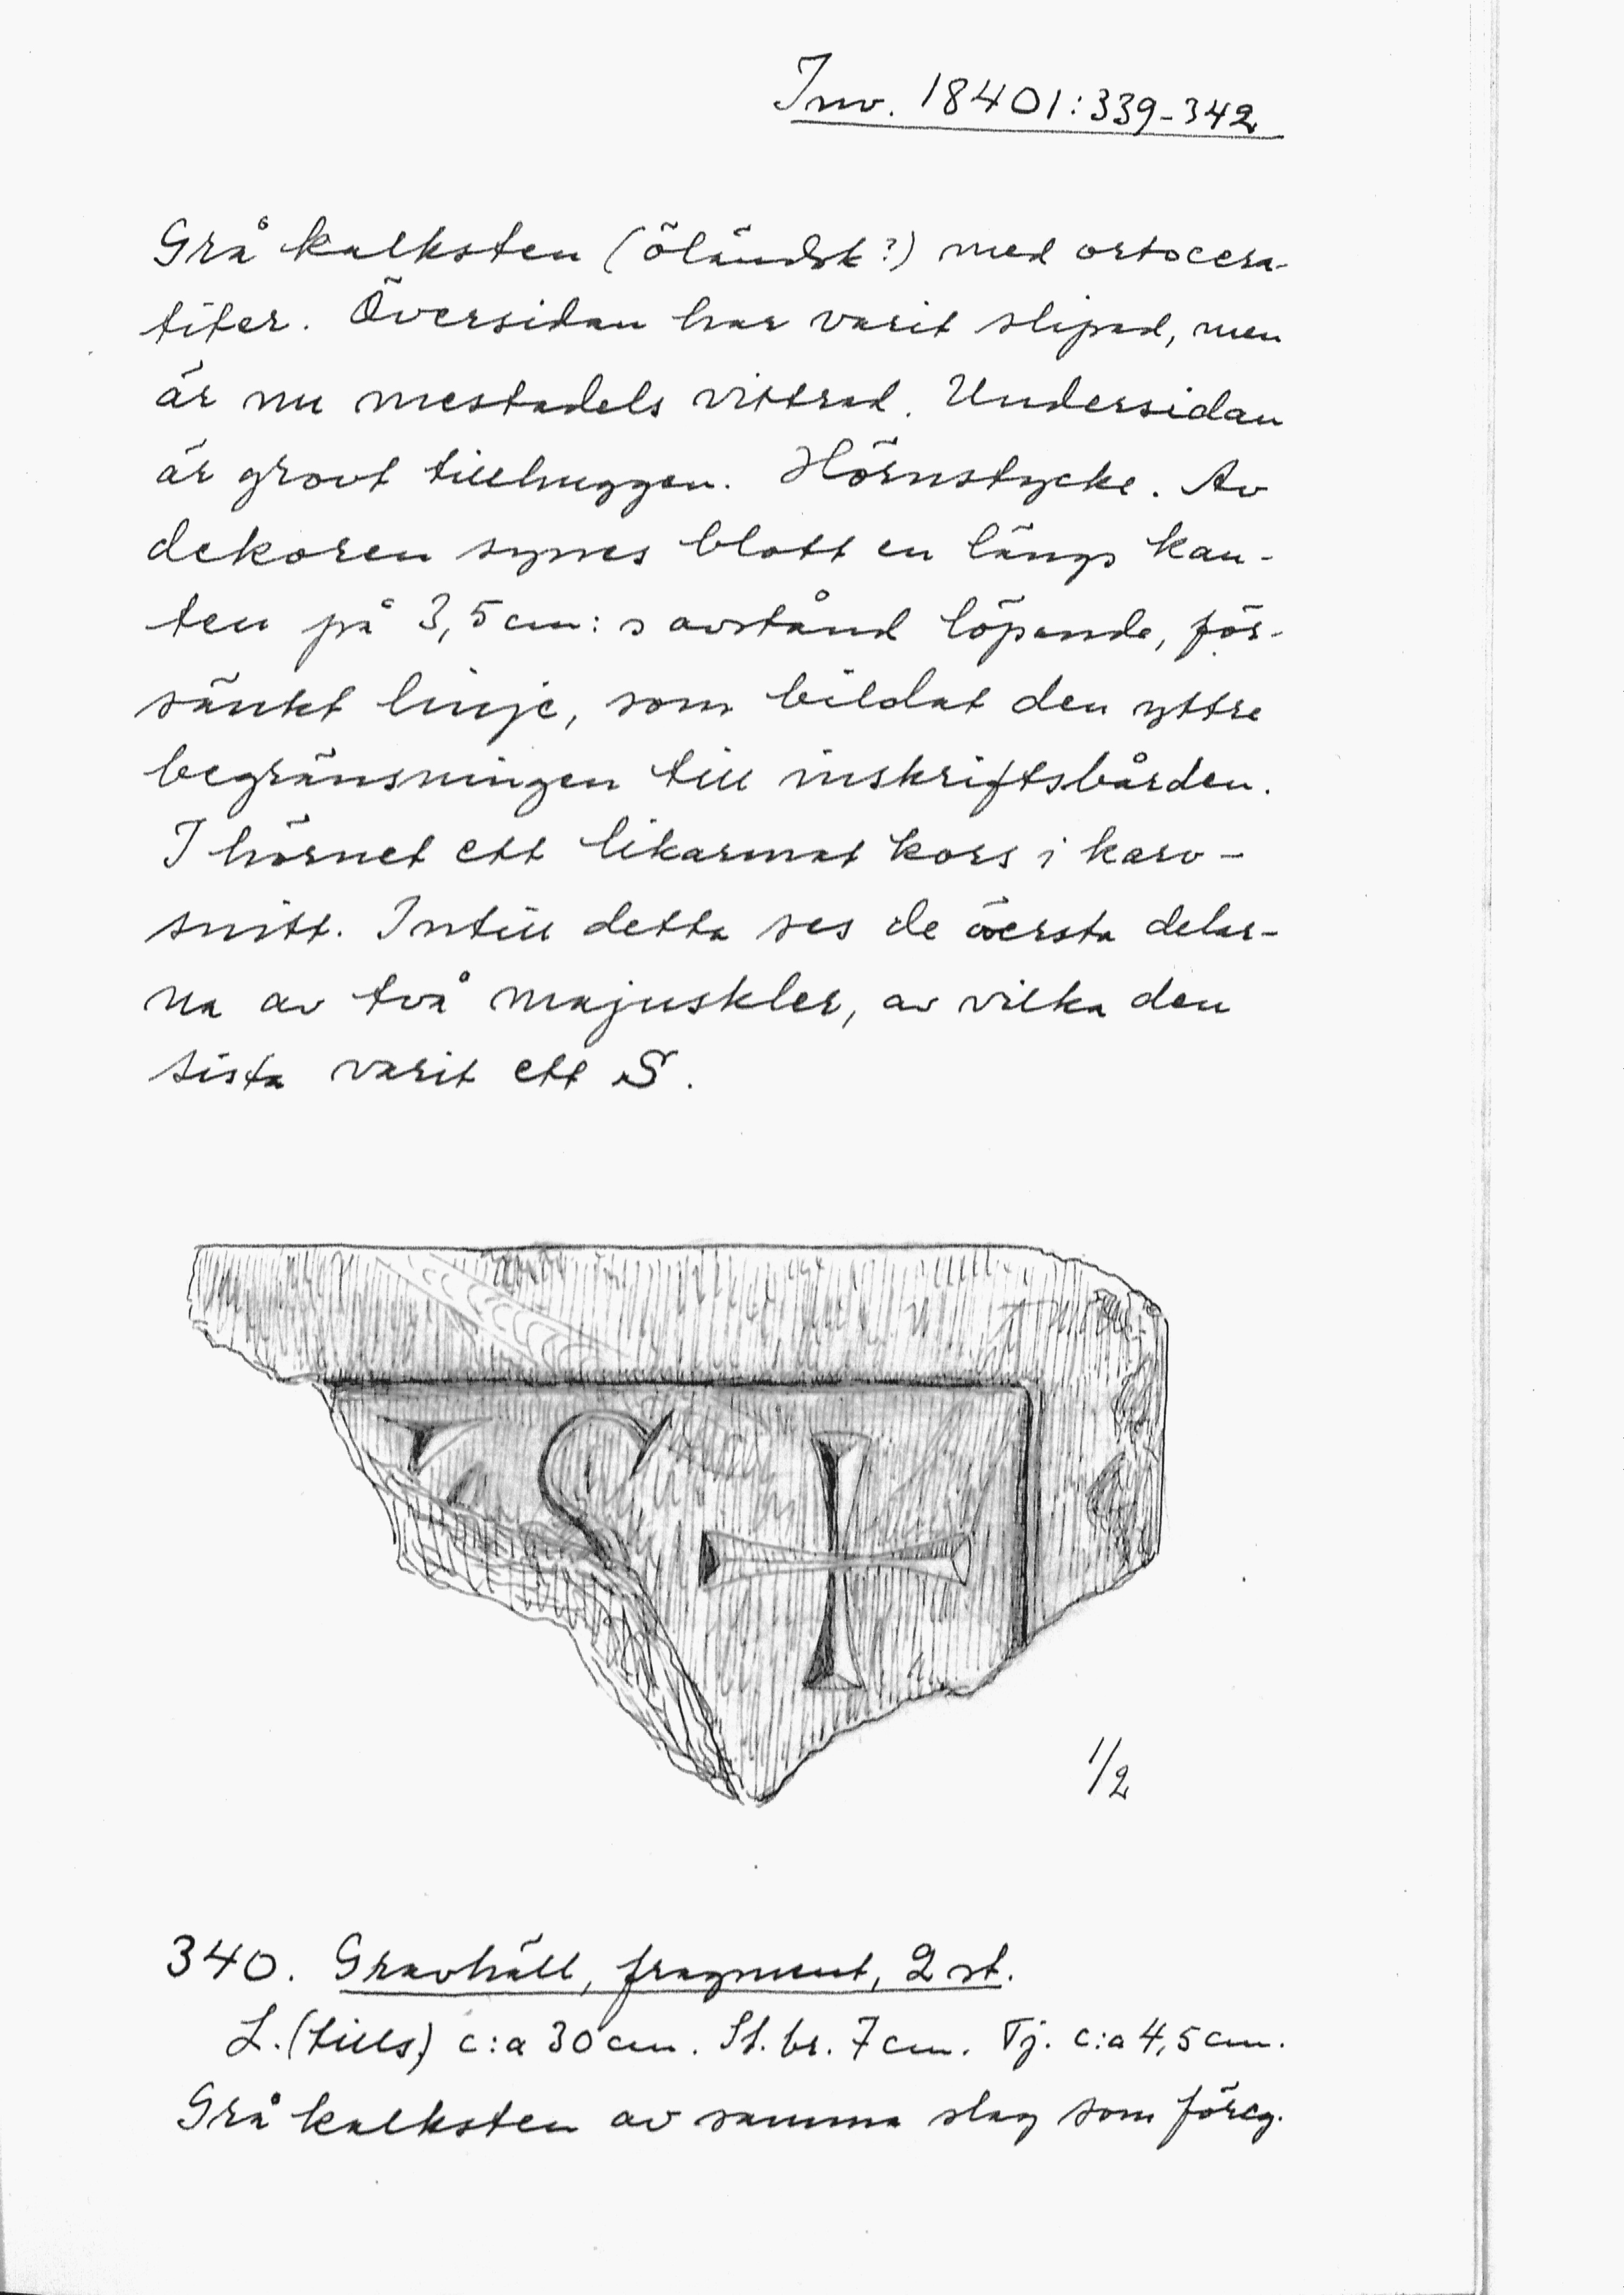 Inv. 18401:339-342
Grå kalksten (öländsk?) med ortocera-
titer. Översidan har varit slipad, men
är nu mestadels vittrad. Undersidan
är grovt tillhuggen. Hörnstycke. Av
dekoren synes blott en längs kan-
ten på 3,5 cm:s avstånd löpande, för-
sänkt linje, som bildat den yttre
begränsningen till inskriftsbården.
I hörnet ett likarmat kors i karv-
snitt. Intill detta ses de översta delar-
na av två majuskler, av vilka den
sista varit ett S.
S
1/2
340. Gravhäll, fragment, 2 st.
L. (tills.) c:a 30 cm. St. br. 7 cm. Tj. c:a 4,5 cm.
Grå kalksten av samma slag som föreg.